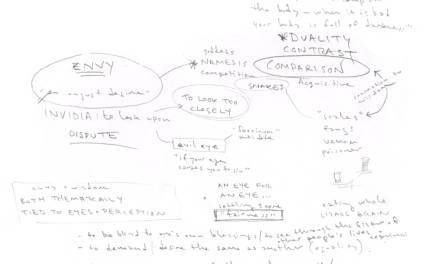 the body - when it is bad
your body is full of darkness..."
*DUALITY
CONTRAST
goddess
*NEMESIS
competition
ENVY
COMPARISON
Acquisitive
"an unjust desire"
SNAKES
TO LOOK TOO
CLOSELY
INVIDIA: to look upon
DISPUTE
"scales"
fangs
venom
evil eye
"fascinum"
"if your eye
causes you to sin"
envy + wisdom
BOTH THEMATICALLY
TIED TO EYES + PERCEPTION
AN EYE FOR
AN EYE...
settling score
"fairness"
eating whole
LIZARD BRAIN
- to be blind to one's own blessings / to see through the filter of
other people's lives, experience
- to demand / desire the same as another (equality)